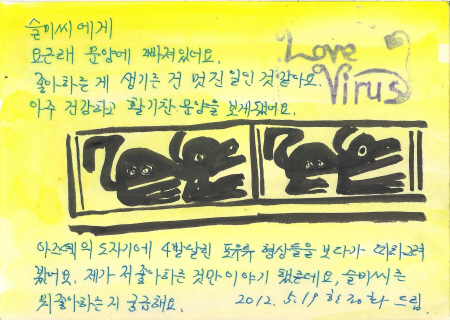 슬미씨에게
요근래 문양에 빠져있어요.
좋아하는 게 생기는 건 멋진일인 것 같아요.
아주 건강하고 활기찬 문양을 보게됐어요.
Love
Virus
아즈텍의 도자기에 4발달린 포유류 형상들을 보다가 따라그려
봤어요. 제가 저 좋아하는 것만 이야기 했는데요, 슬미씨는
뭐 좋아하는지 궁금해요. 2012. 5. 19 한정화 드림.